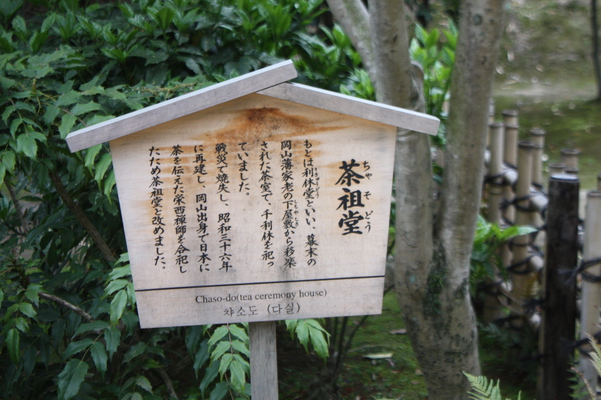 ちゃそどう
茶祖堂
もとは利休堂といい、幕末の
岡山藩家老の下屋敷から移築
された茶室で、千利休を祀っ
ていました。
戦災で焼失し、昭和三十六年
に再建し、岡山出身で日本に
茶を伝えた栄西禅師を合祀し
たため茶祖堂と改めました。
Chaso-do(tea ceremony house)
챠소도 (다실)